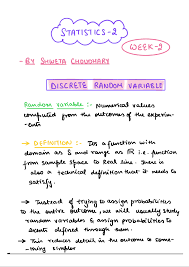 STATISTICS-2
WEEK-2
- BY SHWETA CHOUDHARY
DISCRETE RANDOM VARIABLE
Random variable :- Numerical values
computed from the outcomes of the experim-
ents
→ DEFINITION :- It's a function with
domain as S and range as R i.e. function
from sample space to real line. There is
also a technical definition that it needs to
satisfy.
→ Instead of trying to assign probabilities
to the entire outcome, we will usually study
random variables & assign probabilities to
events defined through them.
→ This reduces detail in the outcome to some-
thing simpler